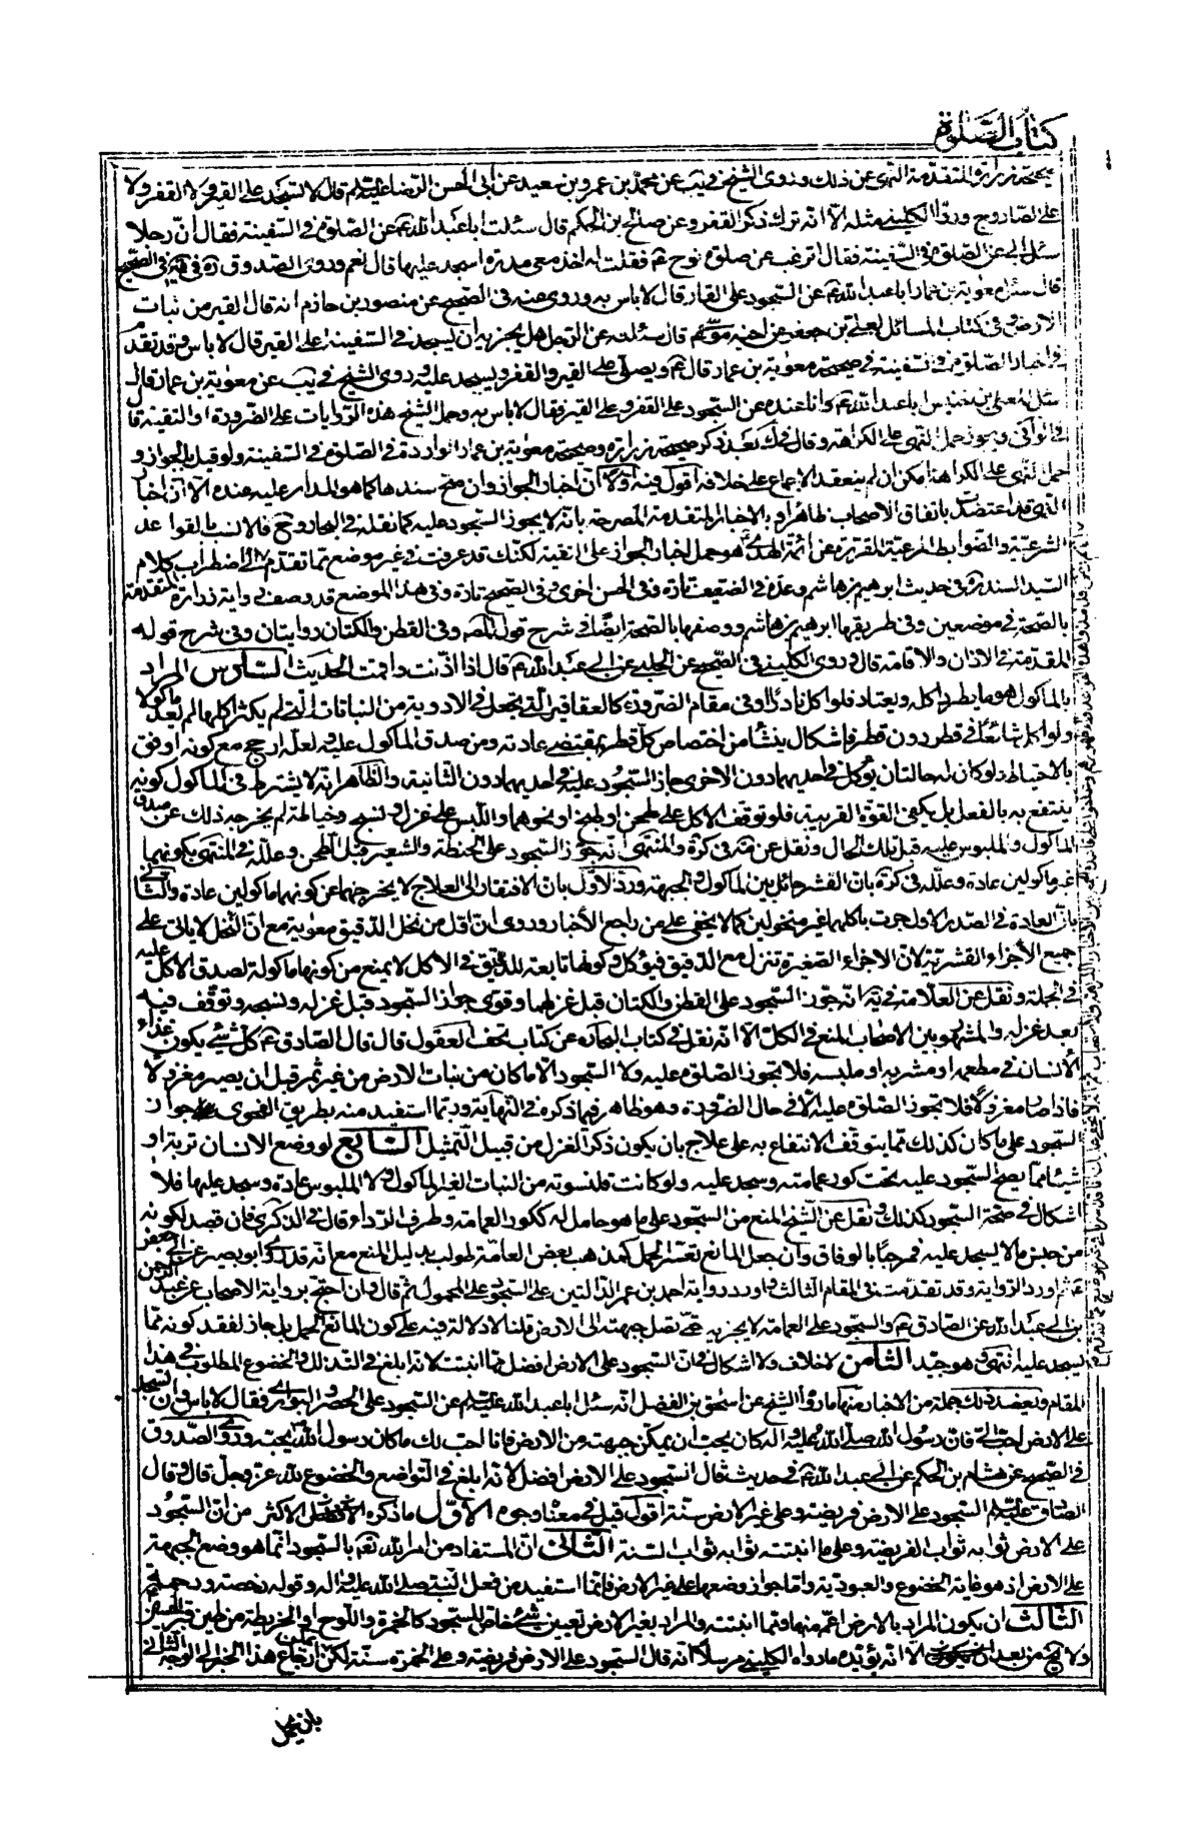 كتاب الصلوة
صحيحة زرارة المتقدمة النهى عن ذلك وروى الشيخ في يب عن محمد بن عمرو بن سعيد عن أبي الحسن الرضا عليه السلم قال لا تسجد على القير ولا القفر ولا
على الصاروج ورواه الكليني مثله الا انه ترك ذكر القفر وعن صالح بن الحكم قال سئلت ابا عبد الله ع عن الصلوة في السفينة فقال ان رجلا
سئل ابي عن الصلوة في السفينة فقال اترغب عن صلوة نوح ع فقلت له اخذ معي مدرة اسجد عليها قال نعم وروى الصدوق ره في الصحيح
قال سئل معوية بن عمار ابا عبد الله ع عن السجود على القار قال لا باس به وروى عنه في الصحيح عن منصور بن حازم انه قال القير من نبات
الارض وفي كتاب المسائل لعلي بن جعفر عن اخيه موسى ع قال سئلته عن الرجل هل يجزيه ان يسجد في السفينة على القير قال لا باس وقد تقدم
في اخبار الصلوة في السفينة في صحيحة معوية بن عمار قال ع ويصلي على القير والقفر ويسجد عليه وروى الشيخ في يب عن معوية بن عمار قال
سئل المعلى بن خنيس ابا عبد الله ع وانا عنده عن السجود على القفر وعلى القير فقال لا باس به وحمل الشيخ هذه الروايات على الضرورة او التقية قا
في الوافي ويجوز حمل النهي على الكراهة وقال في ك بعد ذكر صحيحة زرارة وصحيحة معوية بن عمار الواردة في الصلوة في السفينة ولو قيل بالجواز و
حمل النهي على الكراهة امكن ان لم ينعقد الاجماع على خلافه اقول فيه اولا ان اخبار الجواز وان صح سندها كما هو المدار عليه عنده الا ان اخبار
النهي قد اعتضدت باتفاق الاصحاب ظاهرا وبالاخبار المتقدمة المصرحة بانه لا يجوز السجود عليه كما نقله في البحار وح فالانسب بالقواعد
الشرعية والضوابط المرعية المقررة عن ائمة الهدى هو حمل اخبار الجواز على التقية لكنك قد عرفت في غير موضع مما تقدم اضطراب كلام
السيد السند ره في حديث ابراهيم بن هاشم وعده في الضعيف تارة وفي الحسن اخرى وفي الصحيح تارة وفي هذا الموضع قد وصف رواية زرارة المتقدمة
بالصحة في موضعين وفي طريقها ابراهيم بن هاشم ووصفها بالصحة ايضا في شرح قول المصه وفي القطن والكتان روايتان وفي شرح قوله
المقدمة في الاذان والاقامة قال وروى الكليني في الصحيح عن الحلبي عن ابي عبد الله ع قال اذا اذنت واقمت الحديث السادس المراد
بالماكول هو ما يطرد اكله ويعتاد فلو اكل نادرا او في مقام الضرورة كالعقاقير التي تجعل في الادوية من النباتات التي لم يكثر اكلها لم يعد ماكولا
ولو اكل شائعا في قطر دون قطر فاشكال ينشأ من اختصاص كل قطر بمقتضى عادته ومن صدق الماكول عليه ولعله ارجح مع كونه اوفق
بالاحتياط ولو كان له حالتان يؤكل في احديهما دون الاخرى جاز السجود عليه في احديهما دون الثانية والظاهر انه لا يشترط في الماكول كونه
ينتفع به بالفعل بل يكفي القوة القريبة فلو توقف الاكل على طحن او طبخ او نحوهما واللبس على غزل ونسج وخياطة لم يخرجه ذلك عن صدق
الماكول والملبوس عليه قبل تلك الحال ونقل عن مه في كرة والمنتهى انه جوز السجود على الحنطة والشعير قبل الطحن وعلله في المنتهى بكونهما
غير ماكولين عادة وعلله في كرة بان القشر حائل بين الماكول والجبهة ورد الاول بان الافتقار الى العلاج لا يخرجهما عن كونهما ماكولين عادة والثاني
بان العادة في الصدر الاول جرت باكلهما غير منخولين كما لا يخفى على من راجع الأخبار وروى ان اول من نخل الدقيق معوية مع ان النخل لا ياتي على
جميع الأجزاء القشرية لان الاجزاء الصغيرة تنزل مع الدقيق فيؤكل وكونها تابعة للدقيق في الاكل لا يمنع من كونها ماكولة لصدق الاكل عليه
في الجملة ونقل عن العلامة في يه انه جوز السجود على القطن والكتان قبل غزلهما وقوى جواز السجود قبل غزله ونسجه وتوقف فيه
بعد غزله والمشهور بين الاصحاب المنع في الكل الا انه نقل في كتاب البحار عن كتاب تحف العقول قال قال الصادق ع كل شيئ يكون غذاء
الأنسان في مطعمه او مشربه او ملبسه فلا يجوز الصلوة عليه ولا السجود الا ما كان من نبات الارض من غير ثمر قبل ان يصير مغزولا
فاذا صار مغزولا فلا تجوز الصلوة عليه الا في حال الضرورة وهو ظاهر فيما ذكره في النهاية وربما استفيد منه بطريق الفحوى جواز
السجود على ما كان كذلك مما يتوقف الانتفاع به على علاج بان يكون ذكر الغزل من قبيل التمثيل السابع لو وضع الانسان تربة او
شيئا مما يصح السجود عليه تحت كور عمامته وسجد عليه ولو كانت قلنسوته من النبات الغير الماكول ولا الملبوس عادة وسجد عليها فلا
اشكال في صحة السجود كذلك ونقل عن الشيخ المنع من السجود على ما هو حامل له ككور العمامة وطرف الرداء وقال في الذكرى فان قصد لكونه
من جنس ما لا يسجد عليه فمرحبا بالوفاق وان جعل المانع نفس الحمل كمذهب بعض العامة طولب بدليل المنع مع انه قد روى ابو بصير عن ابي جعفر
ع ثم اورد الرواية وقد تقدمت في المقام الثالث واورد رواية احمد بن عمر الدالتين على السجود على المحمول ثم قال وان احتج برواية الاصحاب عن عبد الرحمن
بن ابي عبد الله عن الصادق ع والسجود على العمامة لا يجزيه حتى تصل جبهته الى الارض قلنا لا دلالة فيه على كون المانع الحمل بل جاز لفقد كونه مما
يسجد عليه انتهى وهو جيد الثامن لا خلاف ولا اشكال في ان السجود على الارض افضل مما انبتت لانه ابلغ في التذلل والخضوع المطلوب في هذا
المقام ويعضد ذلك جملة من الاخبار منها ما رواه الشيخ عن اسحق بن الفضل انه سئل ابا عبد الله عليه السلم عن السجود على الحصر والبواري فقال لا باس وان تسجد
على الارض احب الي فان رسول الله صلى الله عليه واله كان يحب ان يمكن جبهته من الارض فانا احب لك ما كان رسول الله يحبه وروى الصدوق
في الصحيح عن هشام بن الحكم عن ابي عبد الله ع في حديث قال السجود على الارض افضل لانه ابلغ في التواضع والخضوع لله عز وجل قال وقال
الصادق عليه السلم السجود على الارض فريضة وعلى غير الارض سنة اقول قيل في معناه وجوه الأول ما ذكره الاكثر من ان السجود
على الارض ثوابه ثواب الفريضة وعلى ما انبتته ثوابه ثواب السنة الثاني ان المستفاد من امر الله تعه بالسجود انما هو وضع الجبهة
على الارض اذ هو غاية الخضوع والعبودية واما جواز وضعها على غير الارض فانما استفيد من فعل النبي صلى الله عليه واله وقوله رخصة ورحمة
الثالث ان يكون المراد بالارض اعم منها ومما انبتته والمراد بغير الارض تعيين شئ خاص للسجود كالخمرة واللوح او الخريطة من طين قبر الحسين
ولا يخ من بعد الا انه يؤيده ما رواه الكليني مرسلا انه قال السجود على الارض فريضة وعلى الخمرة سنة لكن ارجاع هذا الخبر الى الوجه الثاني
بان يحمل